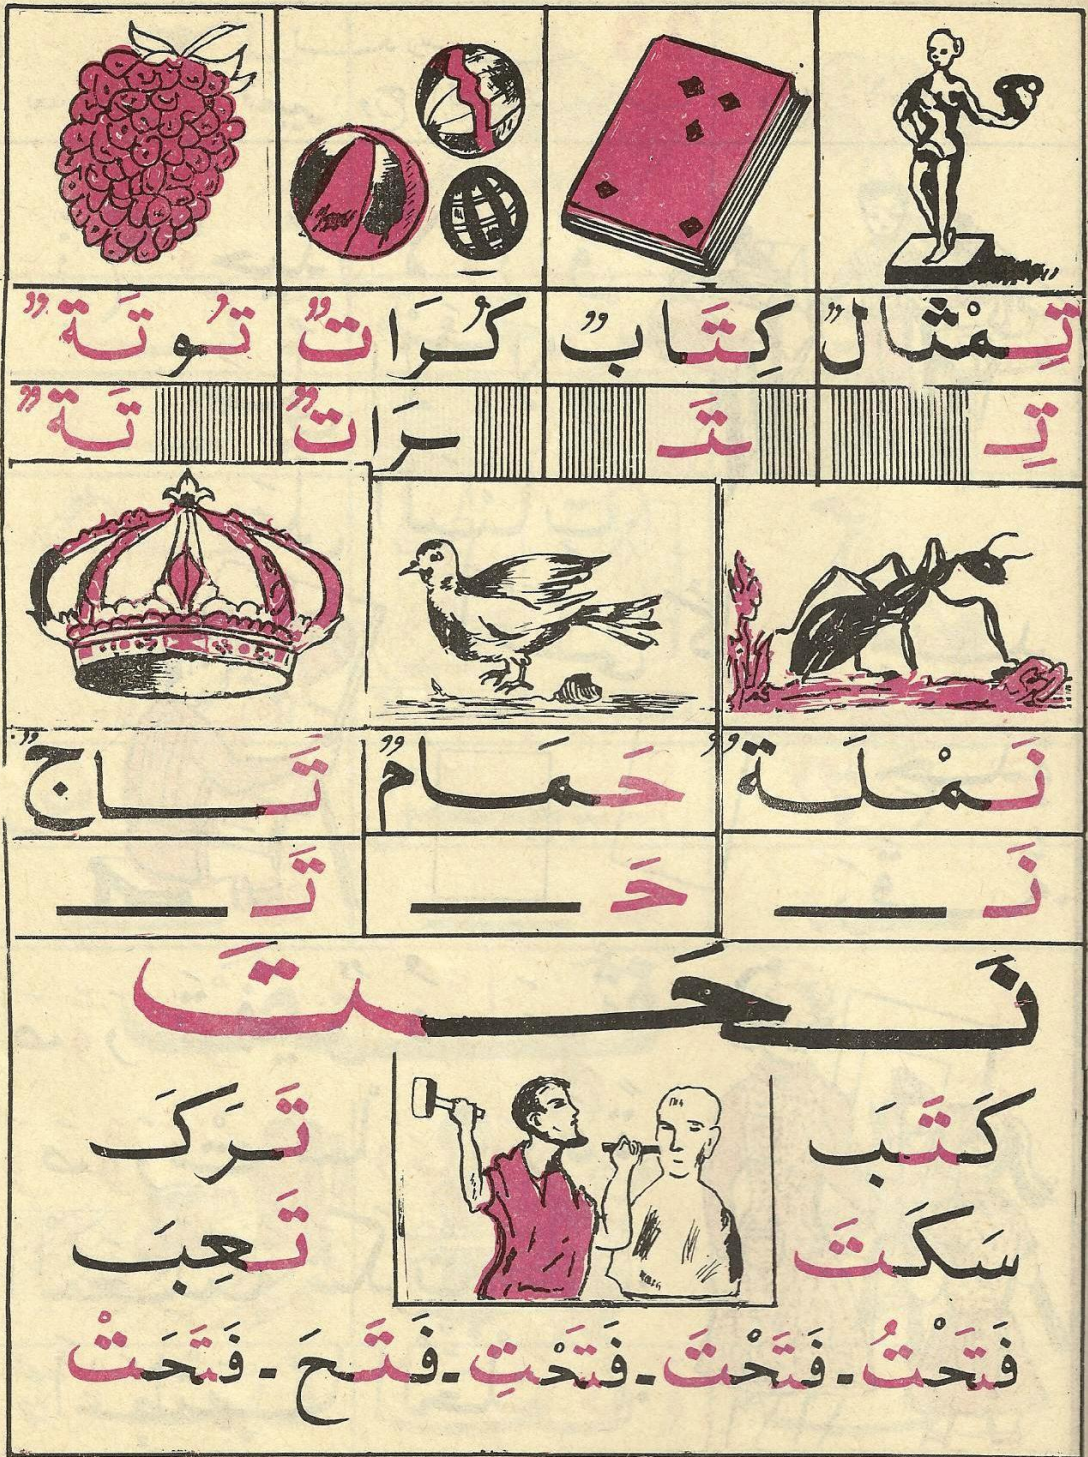 تِمْثَالٌ كِتَابٌ كُرَاتٌ تُوتَةٌ
تِ ـتَـ ـرَاتٌ تَةٌ
نَمْلَةٌ حَمَامٌ تَاجٌ
نَـ حَـ تَـ
نَحَتَ
كَتَبَ تَرَكَ
سَكَتَ تَعِبَ
فَتَحْتُ - فَتَحْتَ - فَتَحْتِ - فَتَحَ - فَتَحَتْ